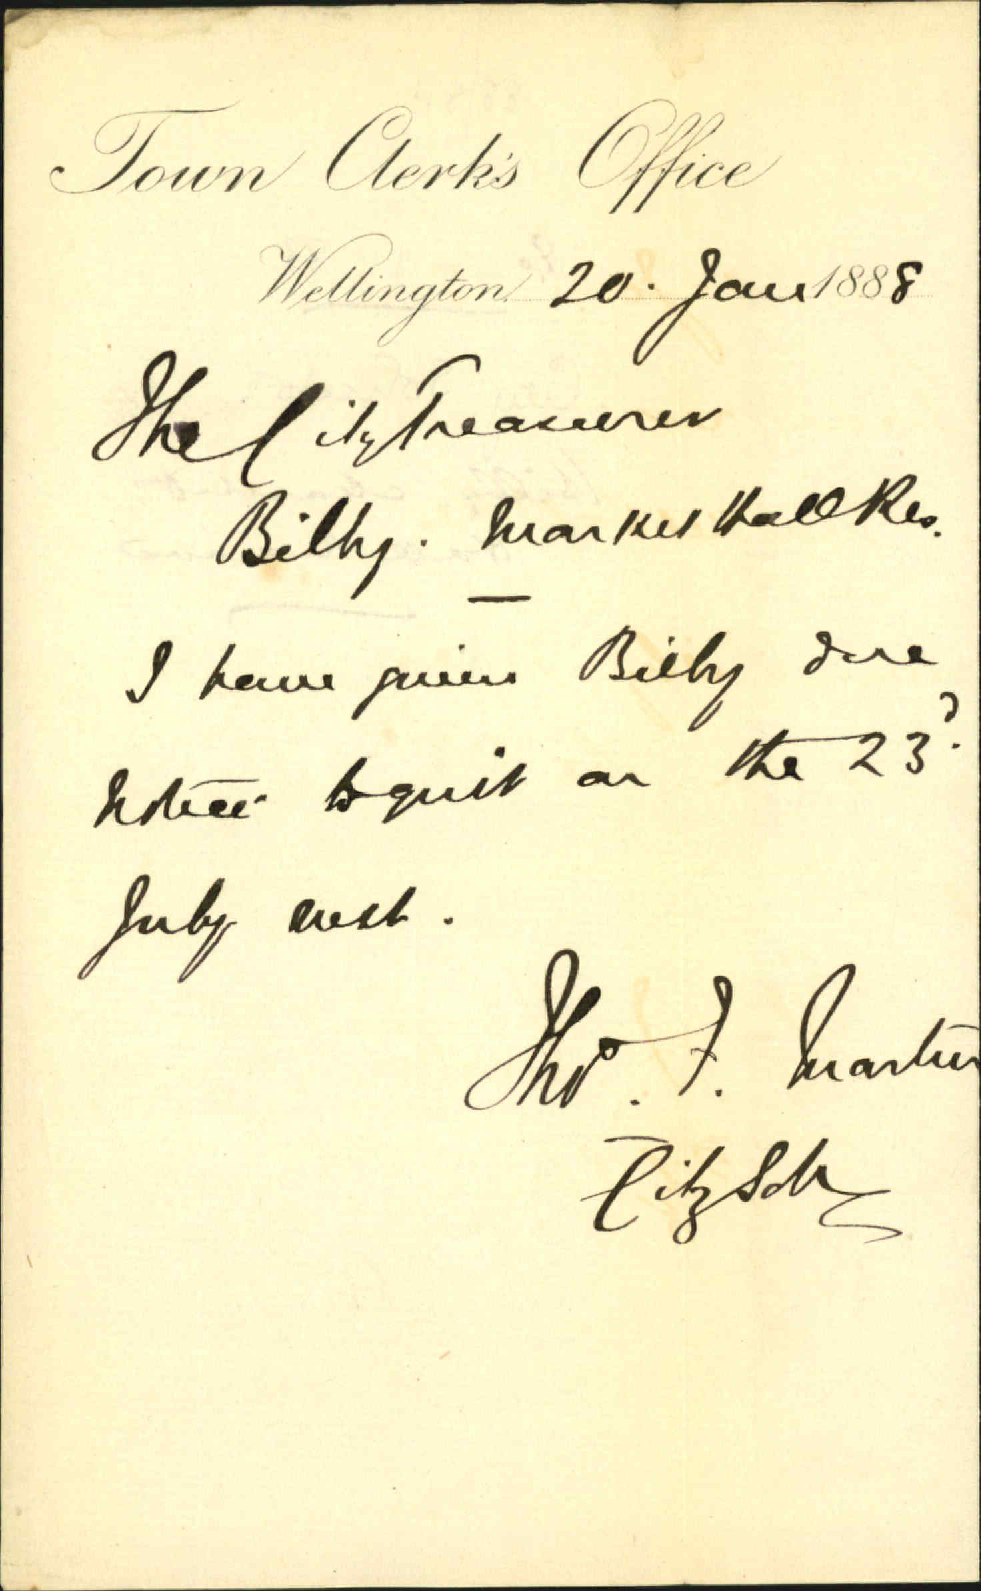 Town Clerk's Office
Wellington 20. Jan 1888
The City Treasurer
Bilby. Market Hall Res.
I have given Bilby due
notice to quit on the 23d.
July next.
Tho. F. Martin
City Solr